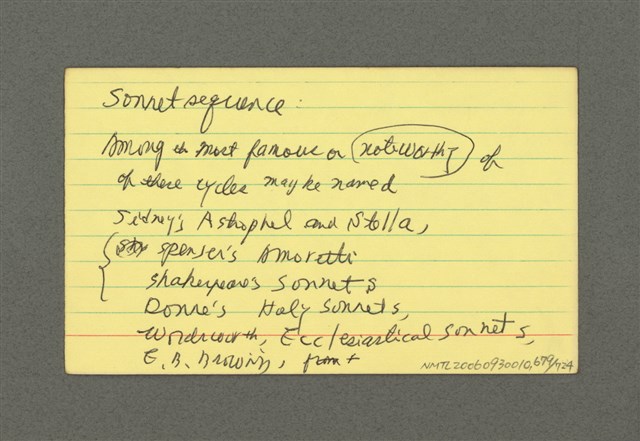 Sonnet sequence:
Among th most famous or noteworthy of
of these cycles may be named
Sidney's Astrophel and Stella,
Spenser's Amoretti
Shakespeare's Sonnets
Donne's Holy Sonnets,
Wordsworth, Ecclesiastical Sonnets,
E. B. Browning,
NMTL20060930010,679/724